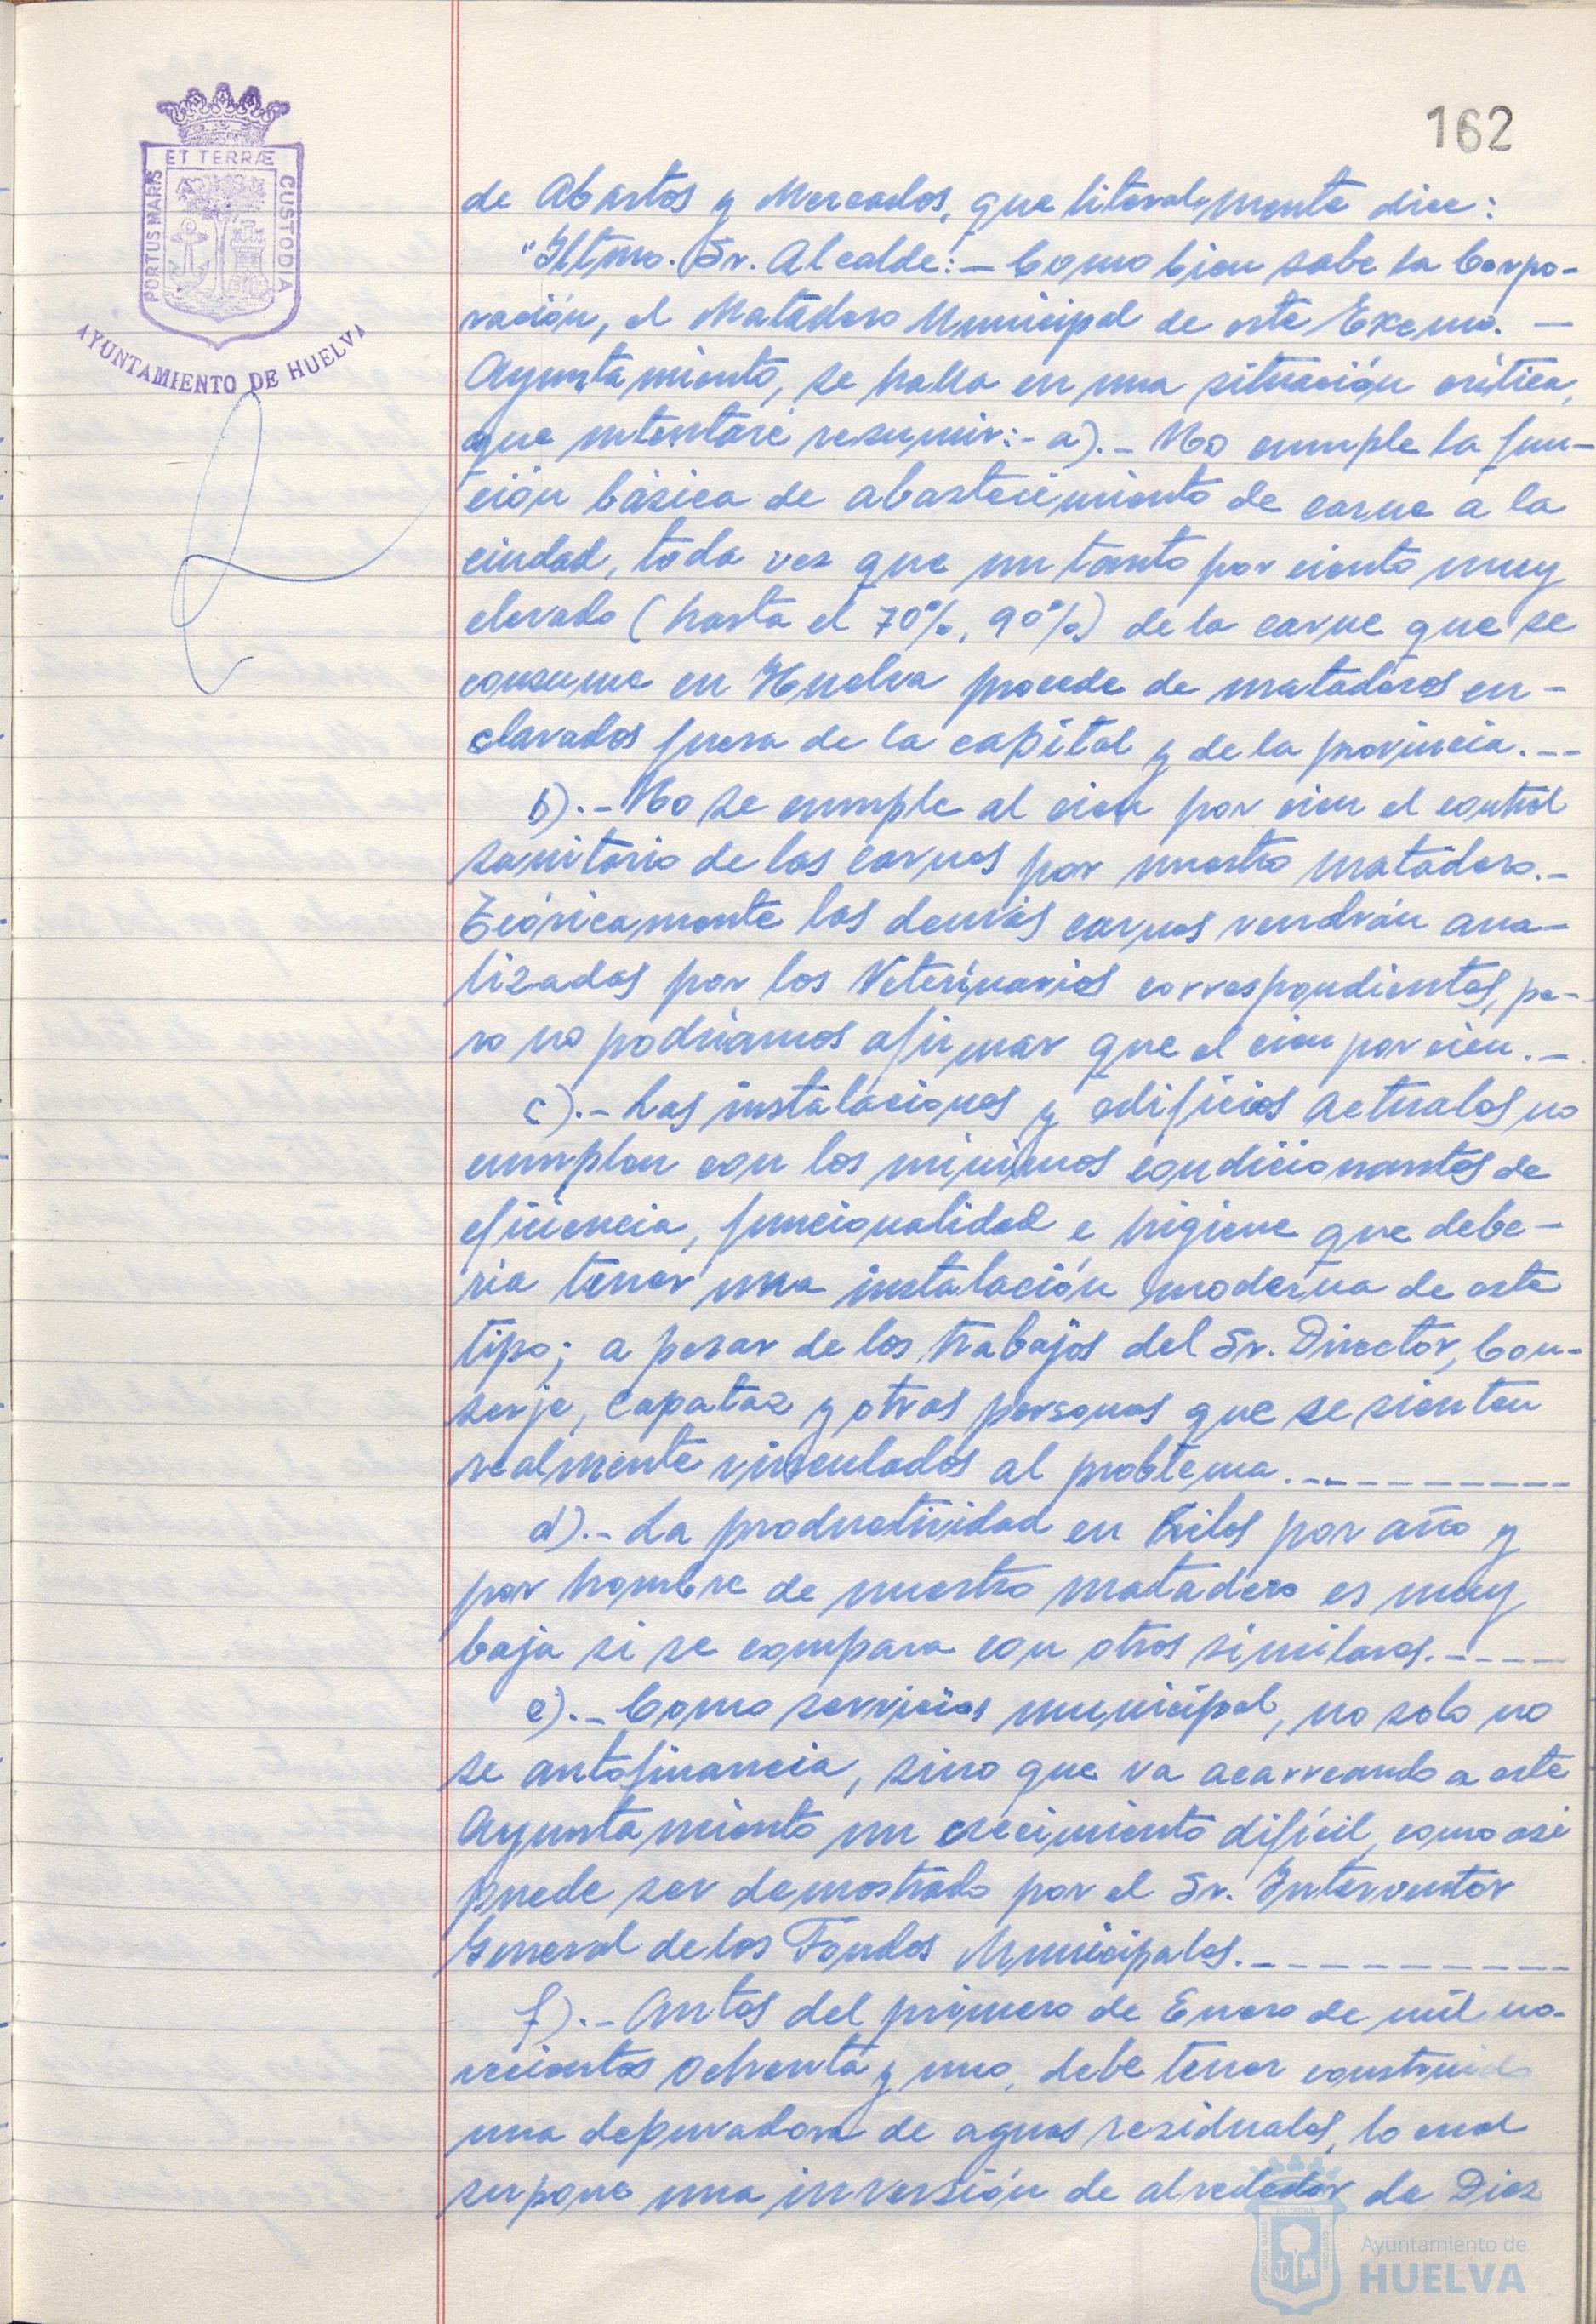 162
ET TERRÆ
PORTUS MARIS
CUSTODIA
AYUNTAMIENTO DE HUELVA
de Abastos y Mercados, que literalmente dice:
"Iltmo. Sr. Alcalde:_ Como bien sabe la Corpo-
ración, el Matadero Municipal de este Excmo. —
Ayuntamiento, se halla en una situación crítica,
que intentaré resumir:- a)._ No cumple la fun-
ción básica de abastecimiento de carne a la
ciudad, toda vez que un tanto por ciento muy
elevado (hasta el 70%, 90%) de la carne que se
consume en Huelva procede de mataderos en-
clavados fuera de la capital y de la provincia.--
b)._ No se cumple al cien por cien el control
sanitario de las carnes por nuestro matadero._
Teóricamente las demás carnes vendrán ana-
lizadas por los Veterinarios correspondientes, pe-
ro no podríamos afirmar que el cien por cien._
c)._ Las instalaciones y edificios actuales no
cumplen con los mínimos condicionantes de
eficiencia, funcionalidad e higiene que debe-
ría tener una instalación moderna de este
tipo; a pesar de los trabajos del Sr. Director, Con-
serje, Capataz y otras personas que se sienten
realmente vinculados al problema.----------
d)._ La productividad en kilos por año y
por hombre de nuestro matadero es muy
baja si se compara con otros similares.-----
e)._ Como servicios municipal, no solo no
se autofinancia, sino que va acarreando a este
Ayuntamiento un crecimiento difícil, como así
puede ser demostrado por el Sr. Interventor
General de los Fondos Municipales.----------
f)._ Antes del primero de Enero de mil no-
vecientos ochenta y uno, debe tener construida
una depuradora de aguas residuales, lo cual
supone una inversión de alrededor de Diez
Ayuntamiento de
HUELVA